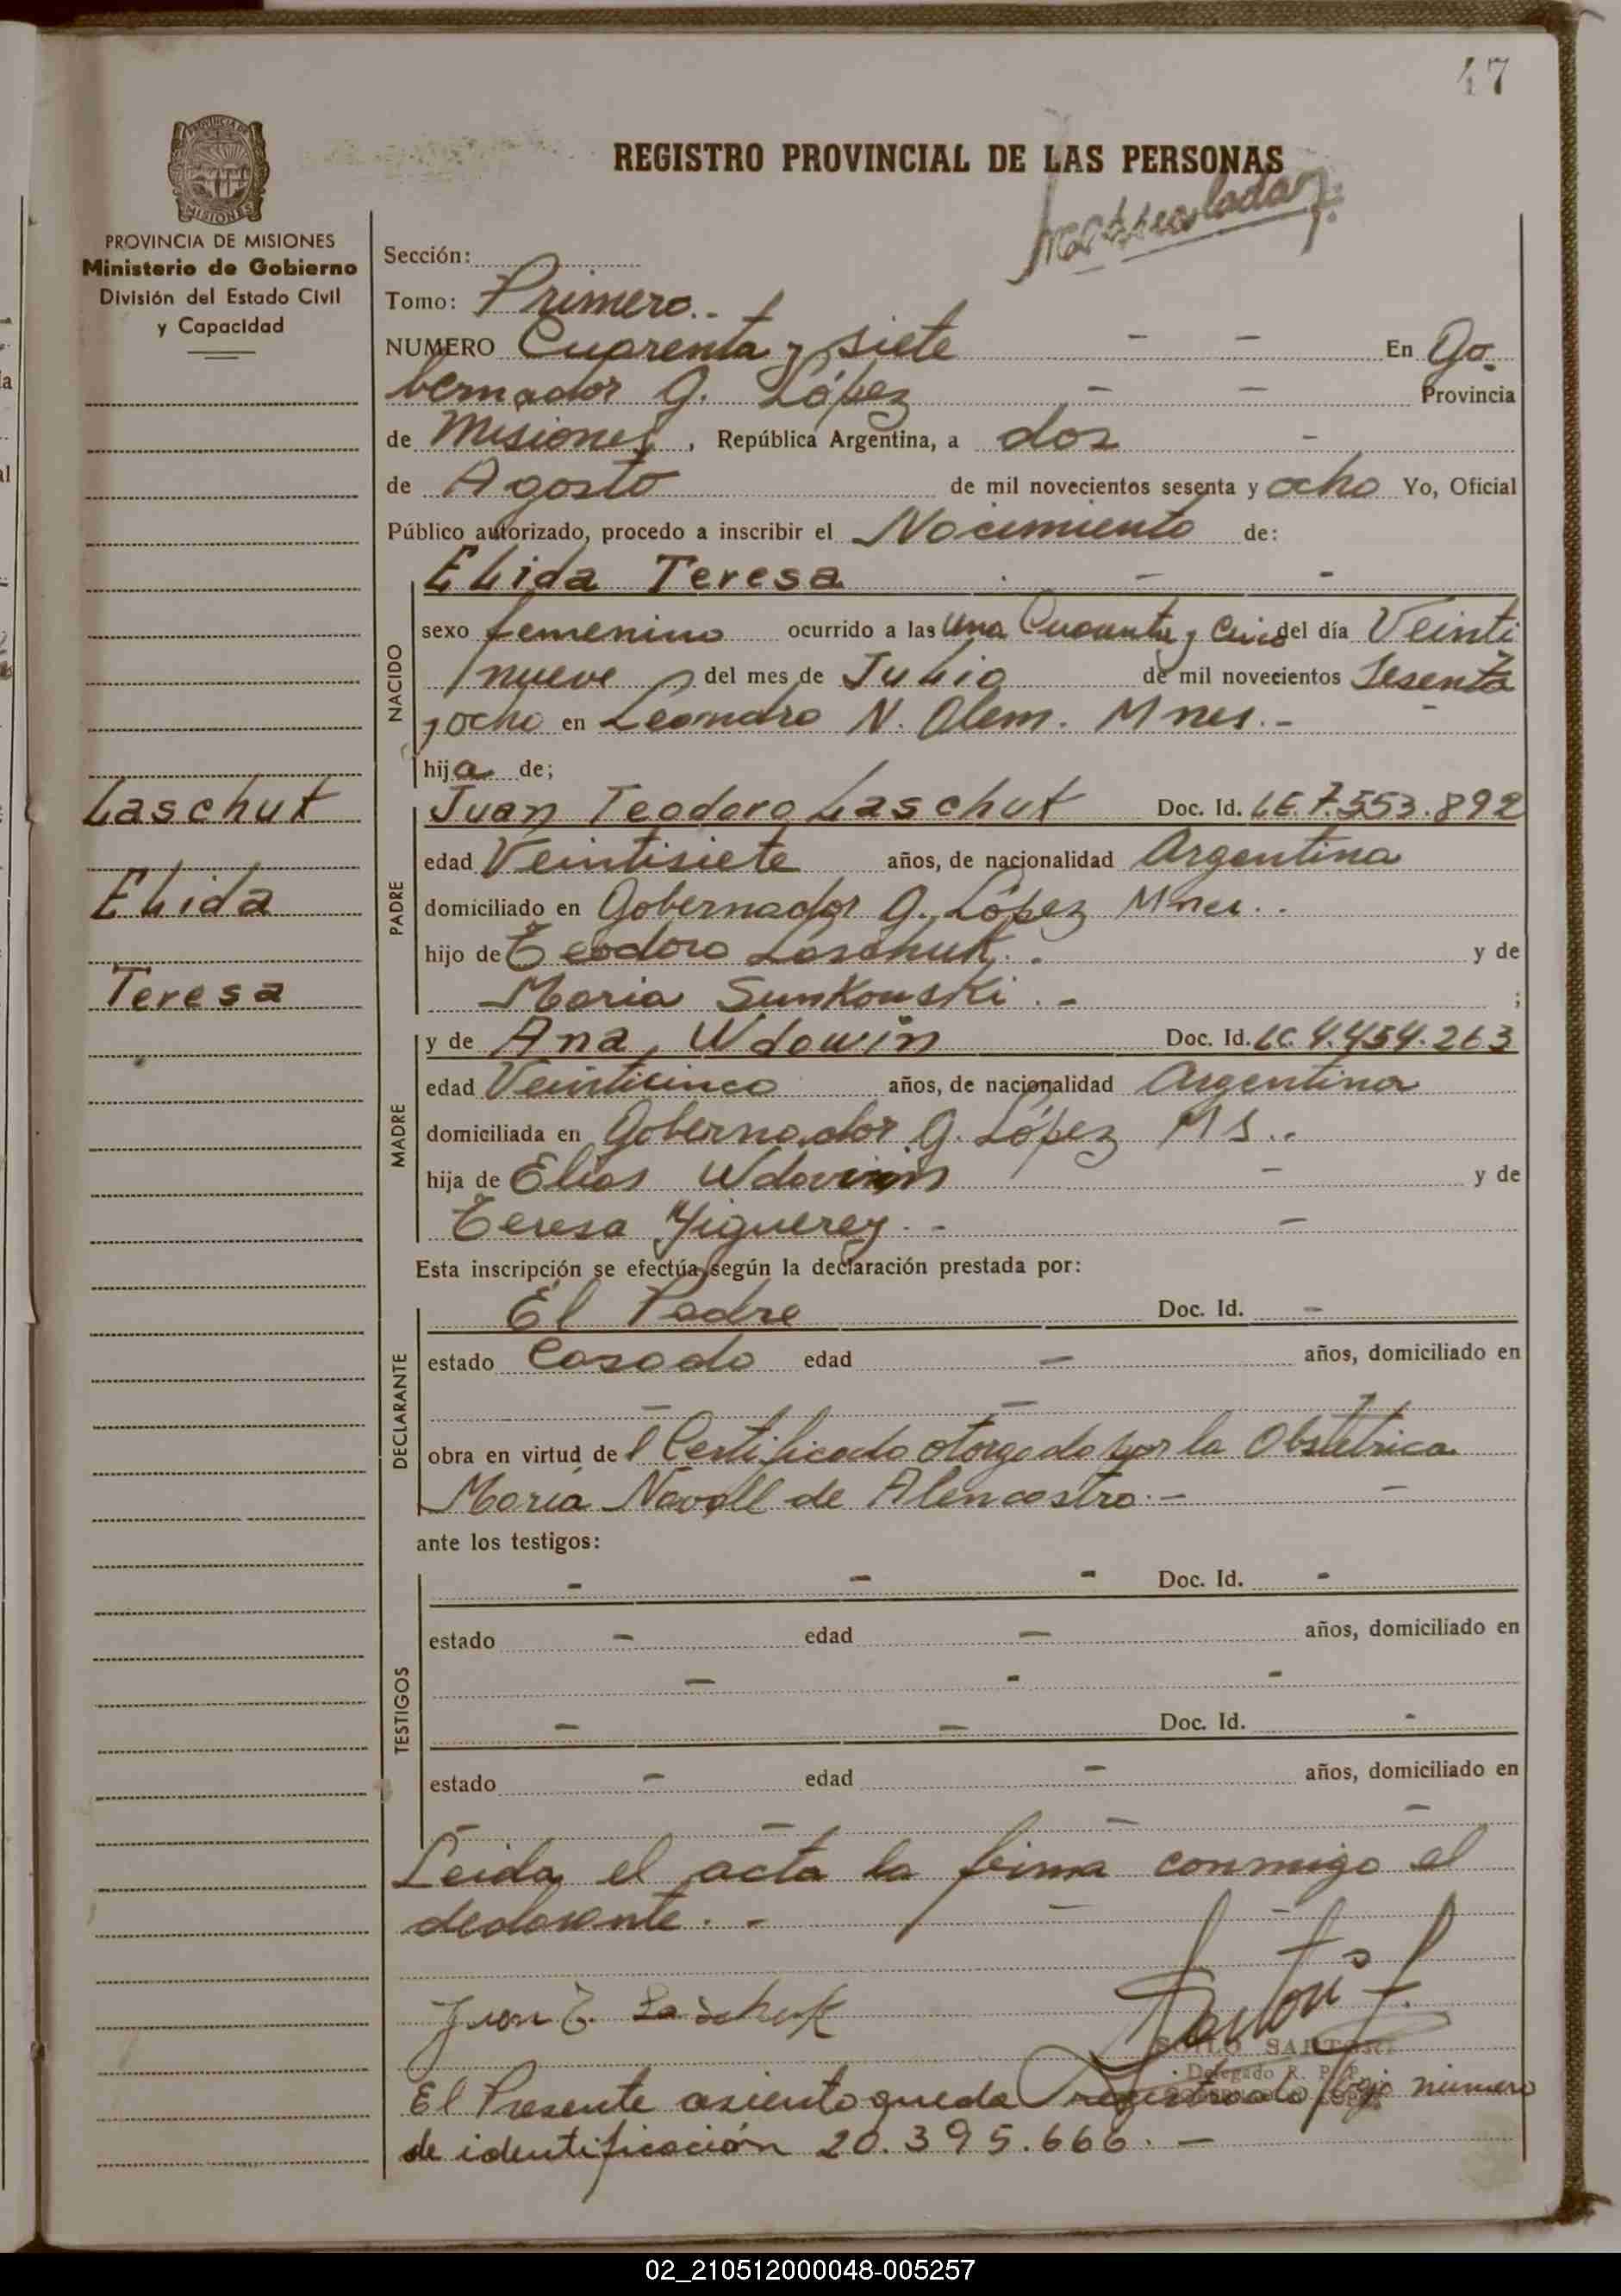 47
REGISTRO PROVINCIAL DE LAS PERSONAS
Matriculada
PROVINCIA DE MISIONES
PROVINCIA DE MISIONES
Ministerio de Gobierno
División del Estado Civil
y Capacidad
Sección:
Tomo: Primero.-
NUMERO Cuarenta y siete - - En Go-
bernador G. López - - Provincia
de Misiones, República Argentina, a dos -
de Agosto de mil novecientos sesenta y ocho Yo, Oficial
Público autorizado, procedo a inscribir el Nacimiento de:
NACIDO
Elida Teresa - -
sexo femenino ocurrido a las Una Cuarenta y Cinco del día Veinti
nueve del mes de Julio de mil novecientos Sesenta
y ocho en Leandro N. Alem. Mnes.-
hija de;
Laschuk
Elida
Teresa
PADRE
Juan Teodoro Laschuk Doc. Id. LE.7.553.892
edad Veintisiete años, de nacionalidad Argentina
domiciliado en Gobernador G. López Mnes..
hijo de Teodoro Laschuk.. y de
Maria Sunkouski.- ;
MADRE
y de Ana, Wdowin Doc. Id. LC.4.454.263
edad Veinticinco años, de nacionalidad Argentina
domiciliada en Gobernador G. López MS..
hija de Elias Wdowin - y de
Teresa Yiguerey.- -
Esta inscripción se efectúa según la declaración prestada por:
DECLARANTE
El Padre Doc. Id. -
estado Casado edad - años, domiciliado en
- -
obra en virtud de l Certificado otorgado por la Obstetrica
Maria Navoll de Alencastro.- -
ante los testigos:
TESTIGOS
- - - Doc. Id. -
estado - edad - años, domiciliado en
- - -
- - Doc. Id. -
estado - edad - años, domiciliado en
- - - -
Leida el acta la firma conmigo el
declarante.- - -
Juan T. Laschuk
SANTORI
Delegado R. P. P.
El Presente asiento queda registrado bajo número
de identificación 20.395.666.-
02_210512000048-005257